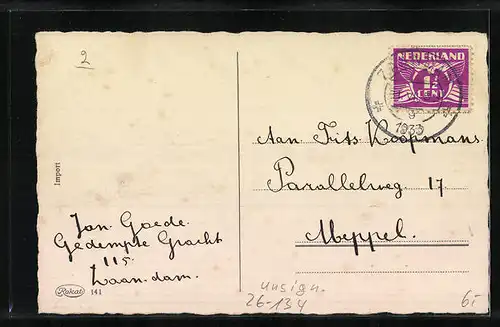 2
NEDERLAND
1½
CENT
1933
Aan Frits Koopmans
Parallelweg 17
Meppel.
Import
Jan Goede.
Gedempte Gracht
115.
Zaandam.
Rokat
141
unsign.
26-134
6,-